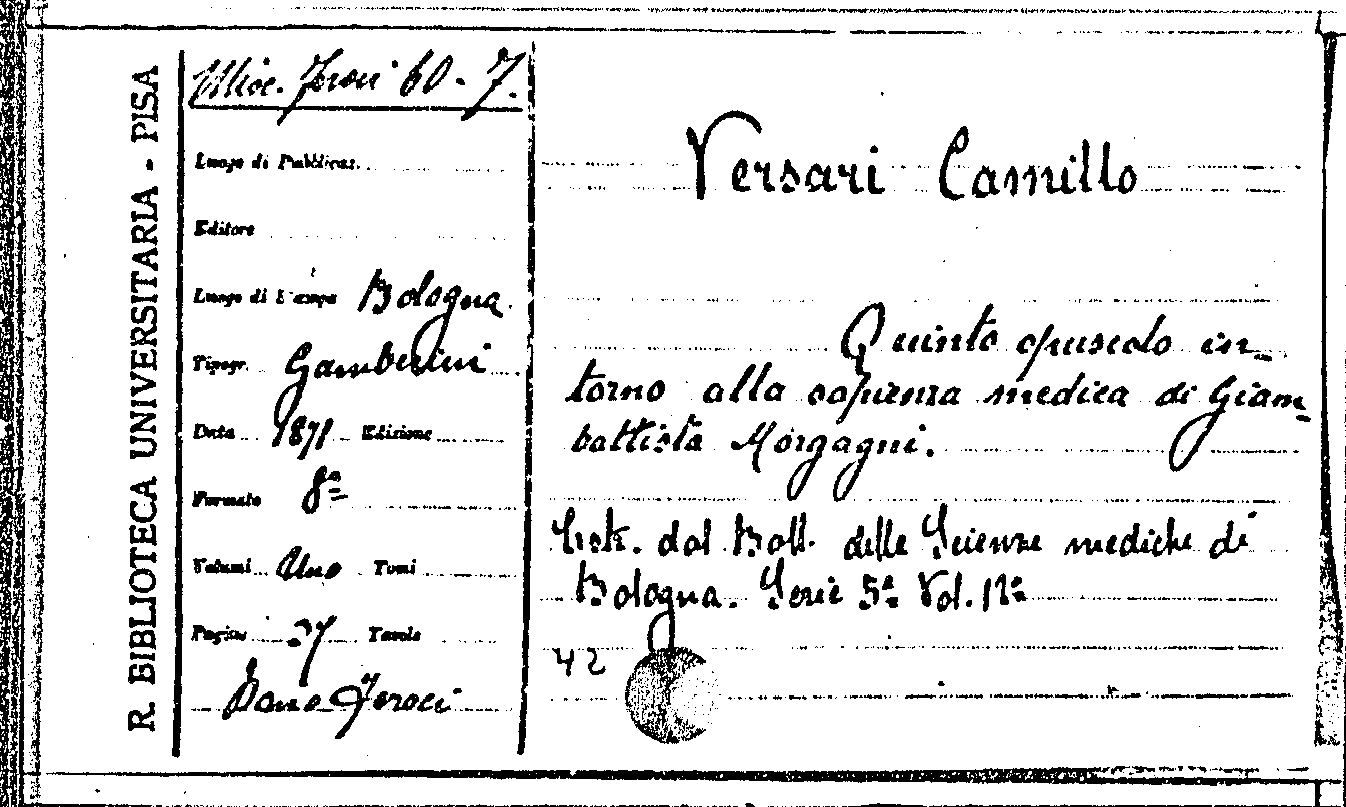 R. BIBLIOTECA UNIVERSITARIA - PISA
Misc. Feroci 60 - 7.
Luogo di Pubblicaz.
Editore
Luogo di Stampa Bologna.
Tipogr. Gamberini
Data 1871 Edizione
Formato 8º
Volumi Uno Tomi
Pagine 37 Tavole
Dono Feroci
Versari Camillo
Quinto opuscolo in-
torno alla sapienza medica di Giam-
battista Morgagni.
Estr. dal Boll. delle Scienze mediche di
Bologna. Serie 5ª Vol.
42